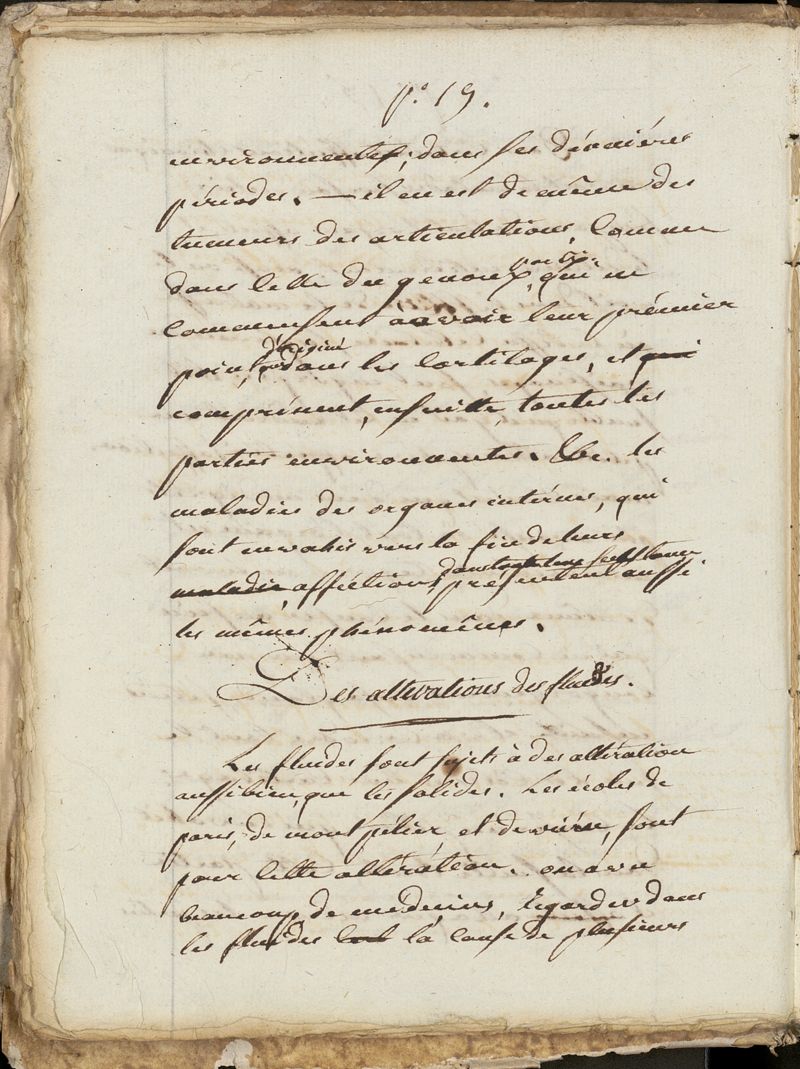 p.° 19.
environnentes, dans ses dérniéres
périodes. — il en est de même des
tumeurs des articulations, Comme
dans Celle du genoux, qui
Commensent à avoir leur prémier
point d'origine dans les Cartilages, et qui
comprénent, ensuitte, toutes les
parties environnentes. &c. les
maladies des organes internes, qui
sont envahis vers la fin de leurs
maladie afféctions, dans toute leur substance présentent aussi
les mêmes phénomênes.
Des altérations des fluides.
Les fluides sont sujets à des altération
aussi bien, que les solides. Les écoles de
paris, de montpélier et de viéne, sont
pour Cette altération. on a vu
beaucoup de medecins, Regarder dans
les fluides la cause de plusieurs